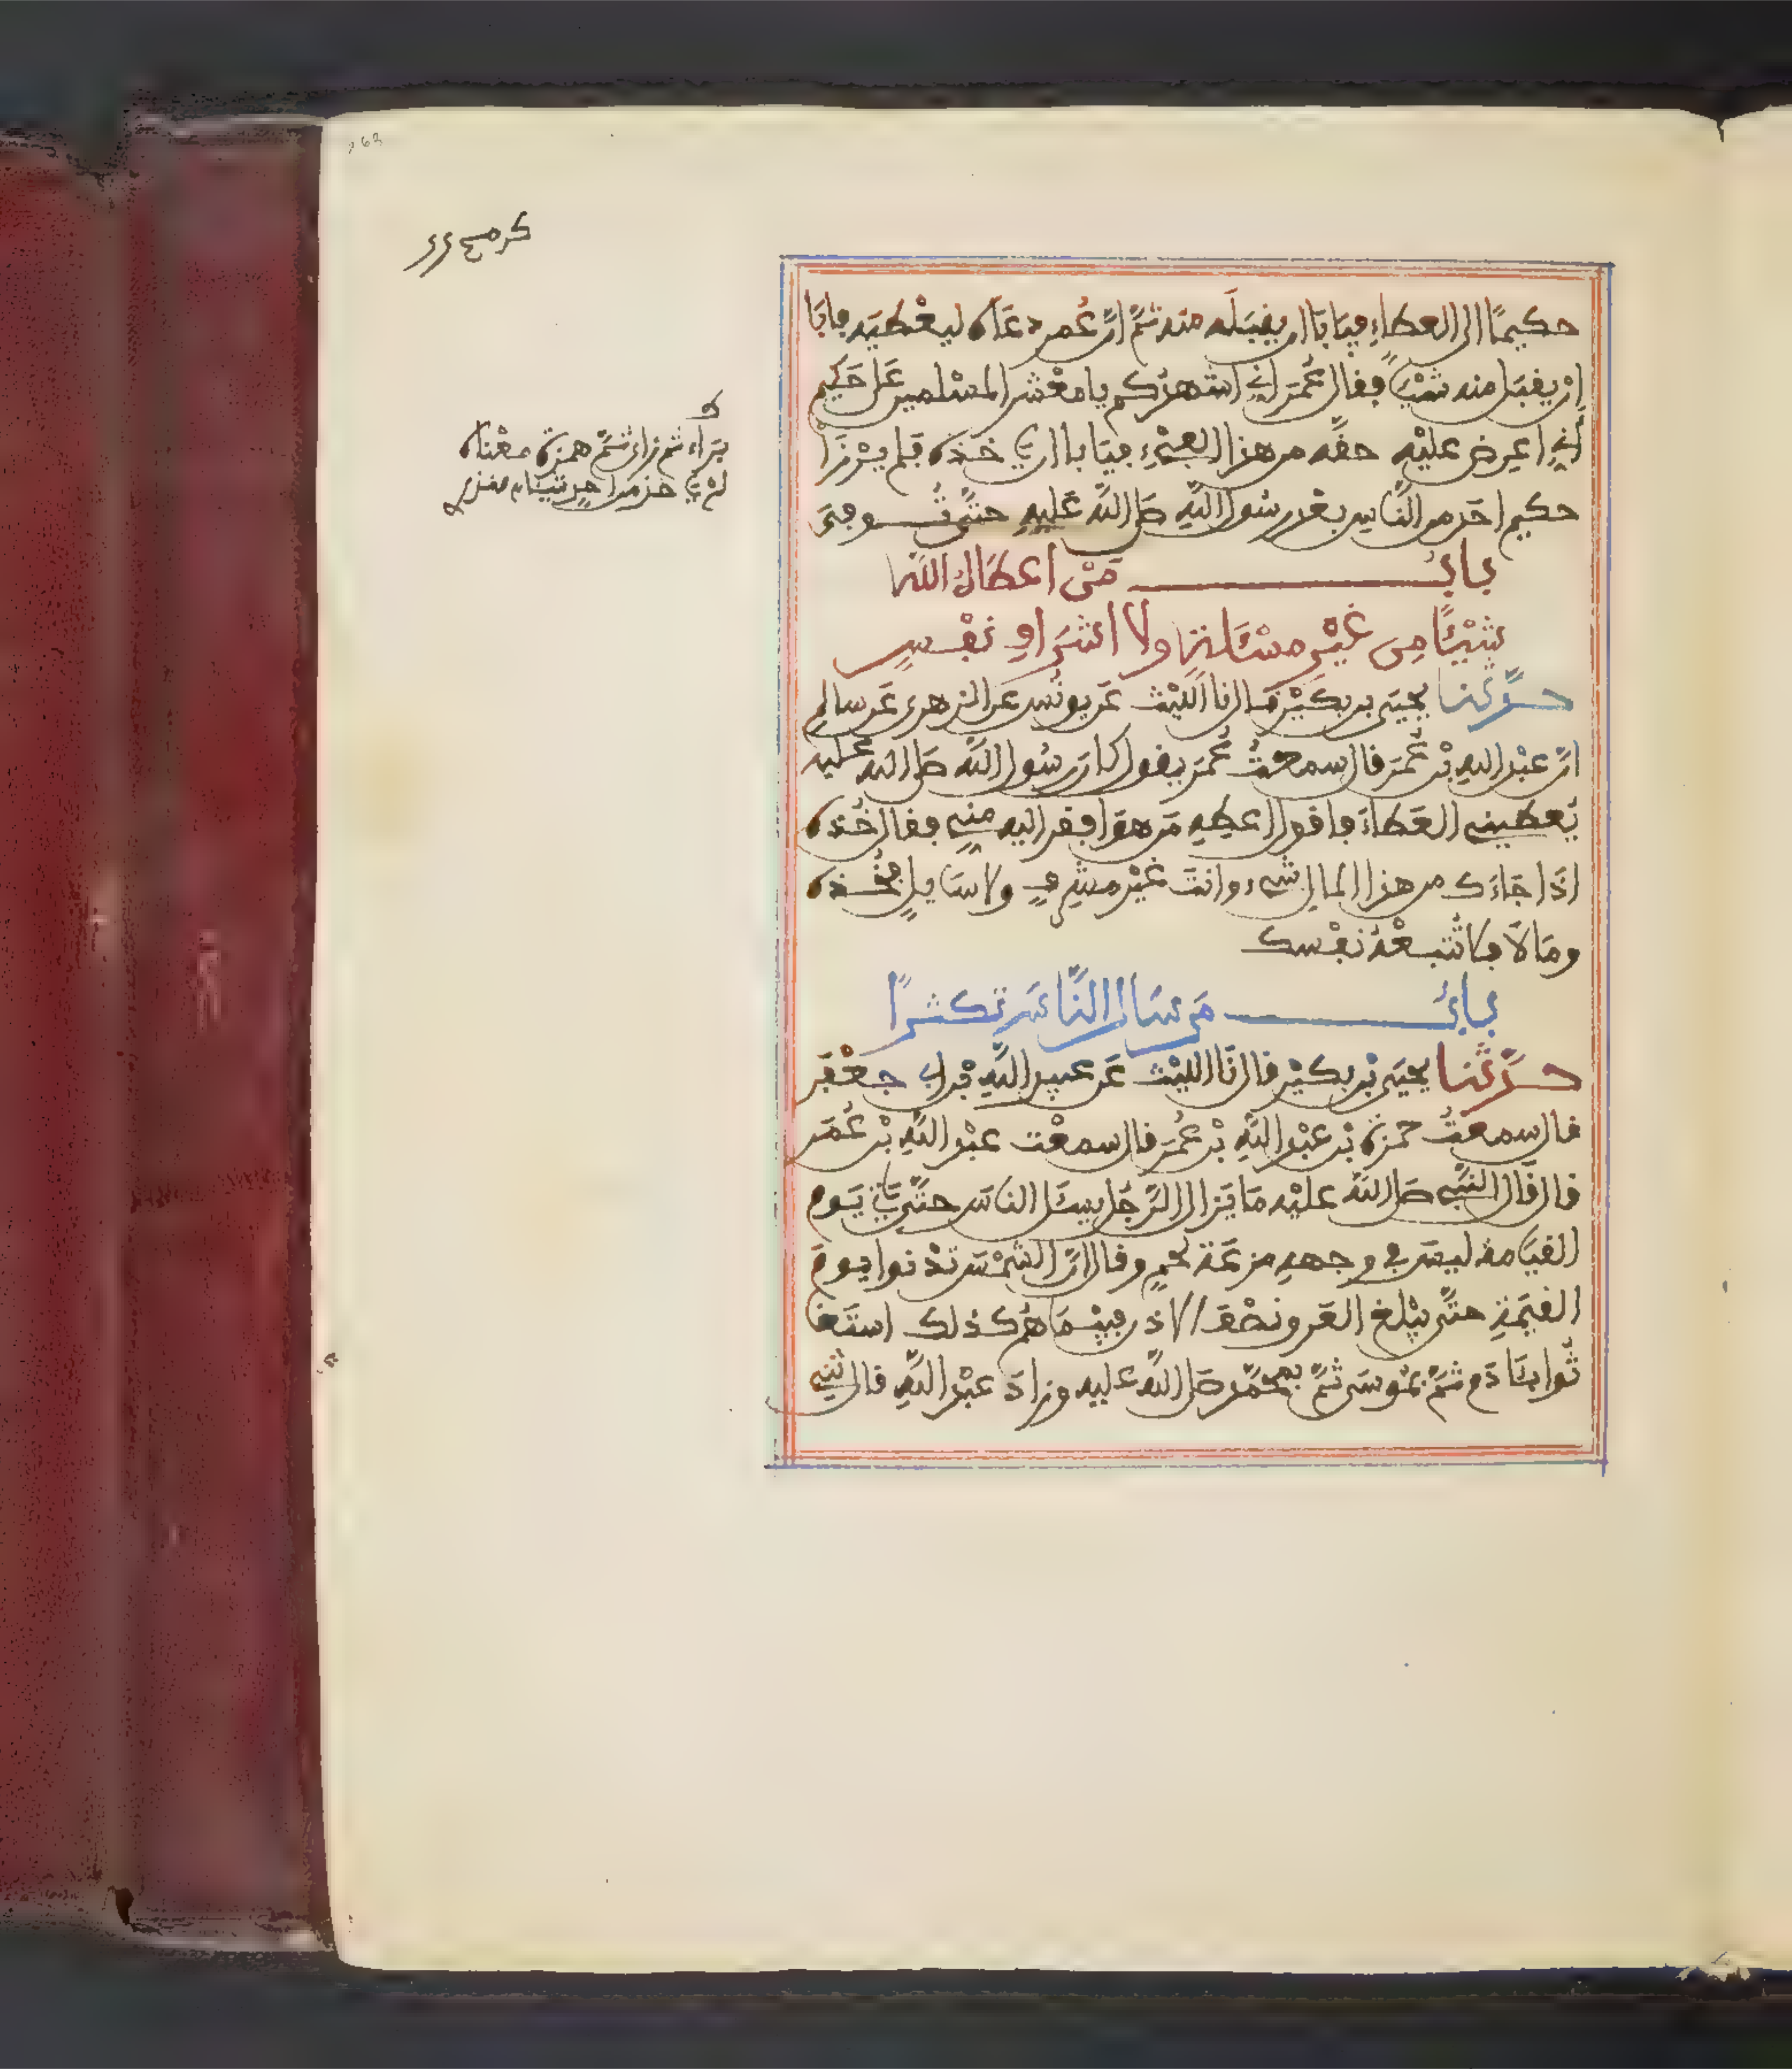 حكيمًا الى العطاءِ فيَابَا ان يقبَلَه منه ثمَّ انَّ عُمر دعَاه ليعْطيَه فابَا
انْ يقبَل منه شيْـًٔا فقال عُمَر انِّي اشهدُكم يا معْشر المسْلمين عَلى حَكيم
أنِّي اعرض عليْه حقَّه من هذا الفيْءِ فيَابا ان ياخذه فلم يرْزَأْ
حكيم احَد من النَّاسِ بعْد رسُول اللَّهِ صَلى اللَّه عَليهِ حتَّى تُـوفِّيَ
بابُ مَنْ اعطَاهُ اللَّه
شيْـًٔا مِن غيْرِ مسْـَٔلةٍ ولا اشرَافِ نفْسٍ
حدَّثنا يحيَى بن بكَيْرٍ قال نا اللَّيْث عَن يونُس عن الزهرى عَن سالم
انَّ عبْد اللهِ بْن عُمَر قال سمعتُ عُمَر يقول كان رسُول اللَّه صَلى الله عليه
يُعطيني العَطاءَ فاقول اعطِهِ مَن هو افقر اليه منِّي فقال خُذه
اذَا جَاءَك من هذا المال شيء وانتَ غيْر مشرفٍ ولا سَايلٍ فخُـذه
ومَا لَا فلا تُتبـعْهُ نفْسك
بابُ مَن سَال النَّاسَ تكثرًا
حدَّثنا يحيَى بْن بكيْر قال نَا الليْث عَن عبيد اللَّهِ بْن ابى جعْفَر
قال سمعتُ حمزة بْن عبْد اللَّهِ بْن عُمَر قال سمعْت عبْد اللَّهِ بْن عُمَر
قال قَال النَّبي صَلى اللَّه عليْه مَا يَزال الرَّجُل يسـَٔل الناسَ حتَّى ياتي يَوم
القيَامة ليسَ في وجههِ مزعَة لحمٍ وقال انَّ الشمْسَ تدْنوا يوم
القيَمةِ حتَّى يبْلغ العَرق نصْفَ الاذن فبيْـنمَا هُم كذلك استغَا
ثُوا بـَٔادَم ثمَّ بمُوسَى ثمَّ بمحمَّد صَلى اللَّه عليه وزادَ عبْد اللَّهِ قال ثني
برَاء ثم زاى ثمَّ همزة معْناه
لم ياخذ من احدٍ شيئا